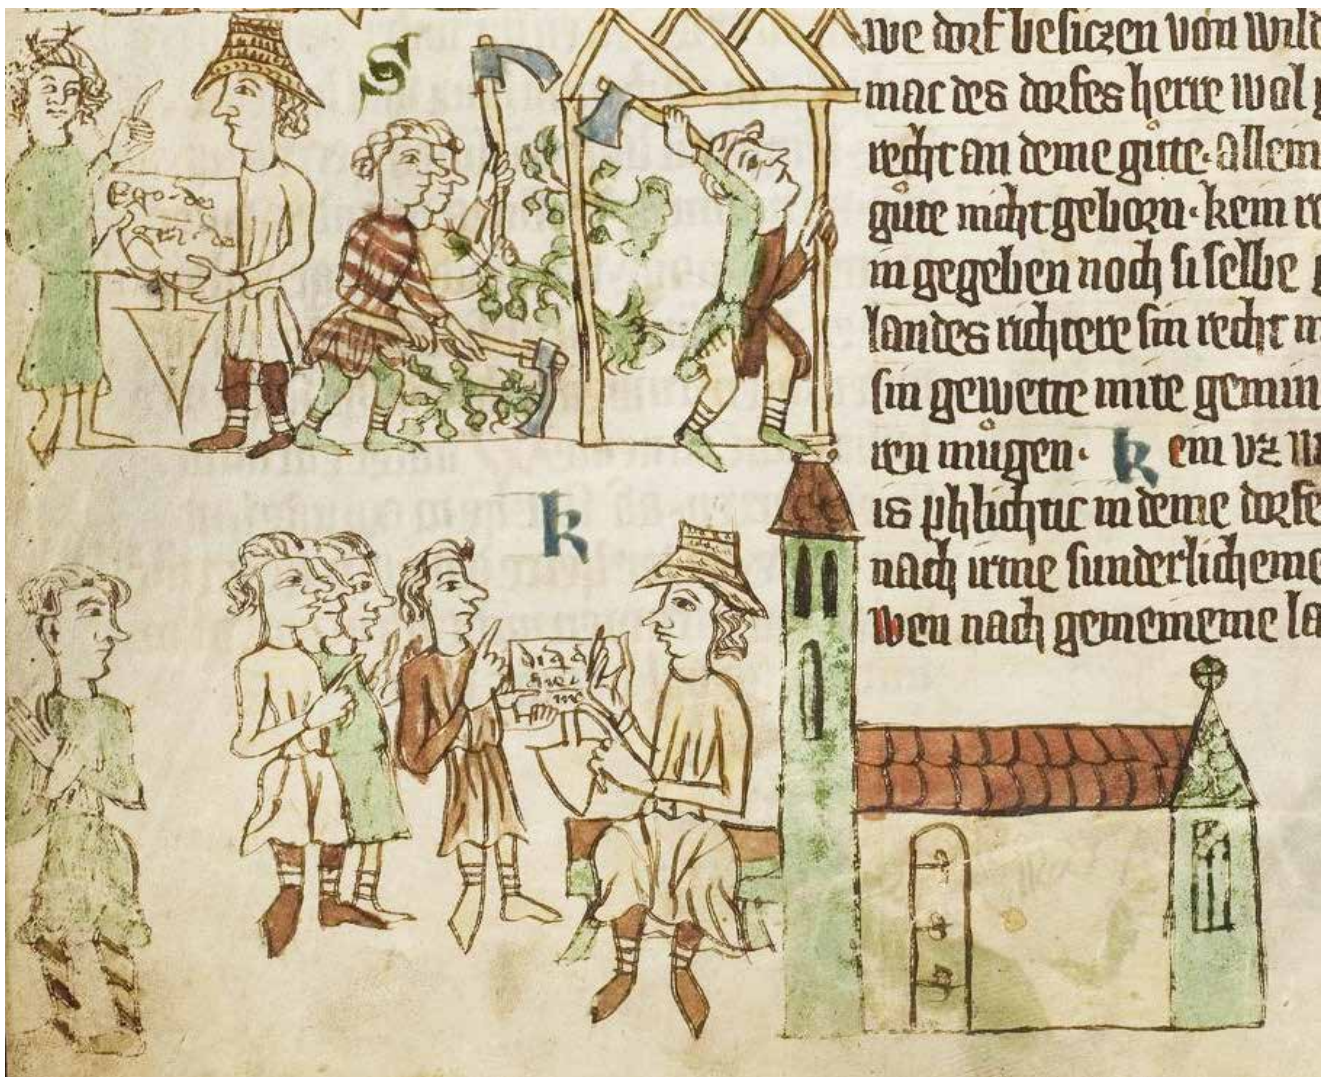 S
Ego·de
we dorf besiczen von wild
mac des dorfes herre wol
recht an deme gůte·allein
gůte nicht geborn·kein re
in gegeben noch si selbe g
landes richtere sin recht m
sin gewette mite gemin
ren můgen· kein vz w
is phlichtic in deme dorfe
nach irme sunderlicheme
wen nach gemeineme la
k